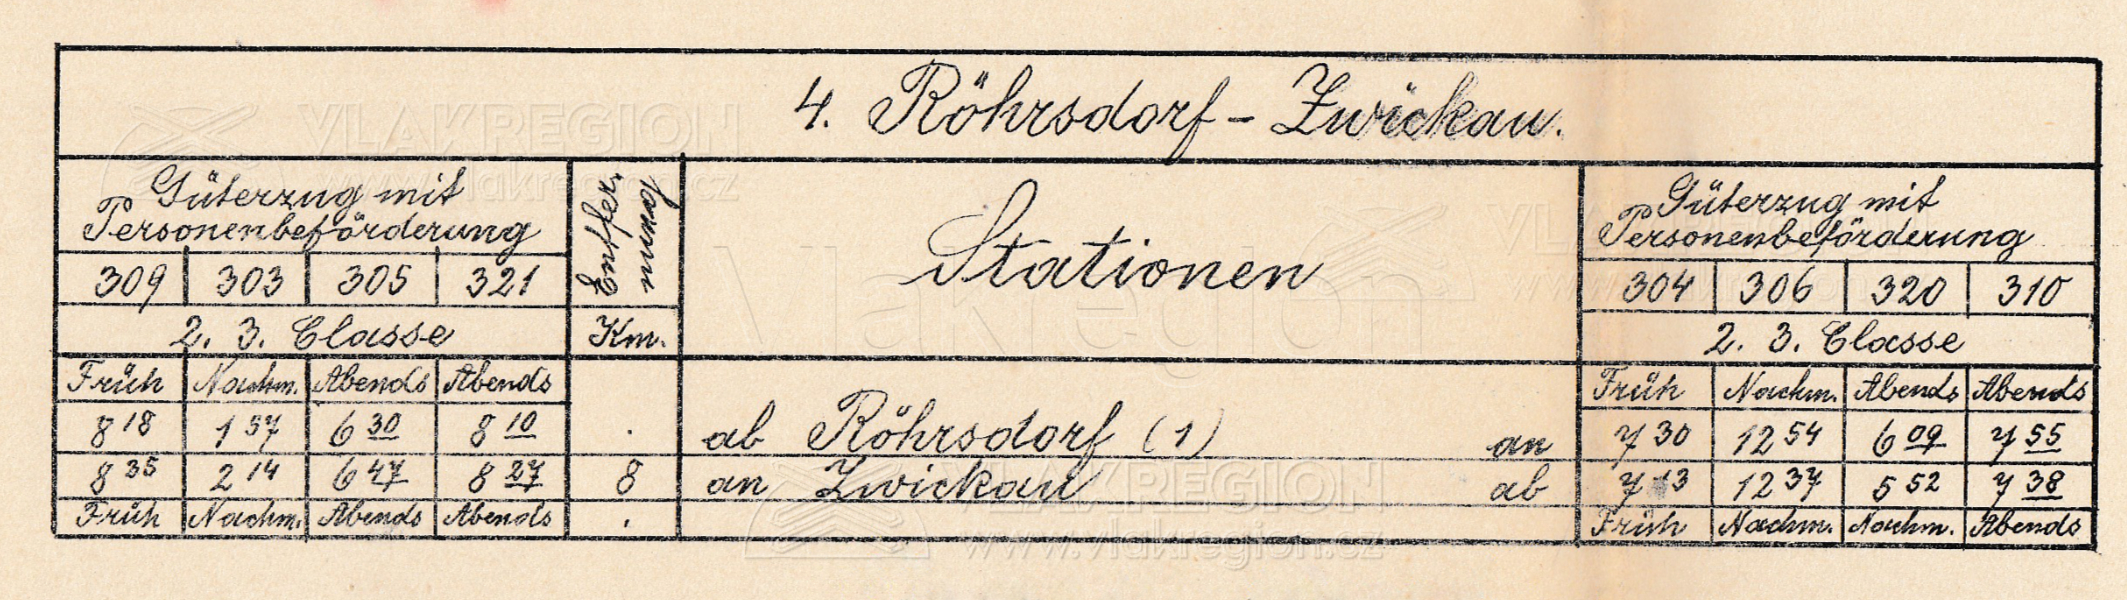 4. Röhrsdorf - Zwickau.
Güterzug mit Personenbeförderung
Entfernung
Stationen
Güterzug mit Personenbeförderung
309 303 305 321
304 306 320 310
2. 3. Classe Km. 2. 3. Classe
Früh Nachm. Abends Abends Früh Nachm. Abends Abends
8 18 1 57 6 30 8 10 . ab Röhrsdorf (1) an 7 30 12 54 6 09 7 55
8 35 2 14 6 47 8 27 8 an Zwickau ab 7 13 12 37 5 52 7 38
Früh Nachm. Abends Abends . Früh Nachm. Nachm. Abends
VLAKREGION
www.vlakregion.cz
Vlakregion
VLAKREGION
www.vlakregion.cz